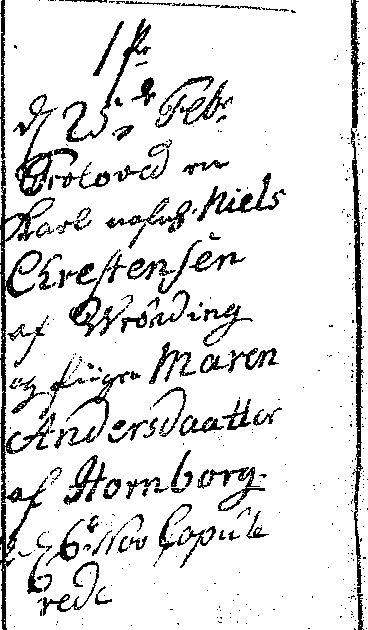 1 Pr
d 25de Febr
Troloved en
Karl nafnl. Niels
Chrestensen
af Wrönding
og piigen Maren
Andersdaatter
af Hornborg
d 6te Nov Copule
rede